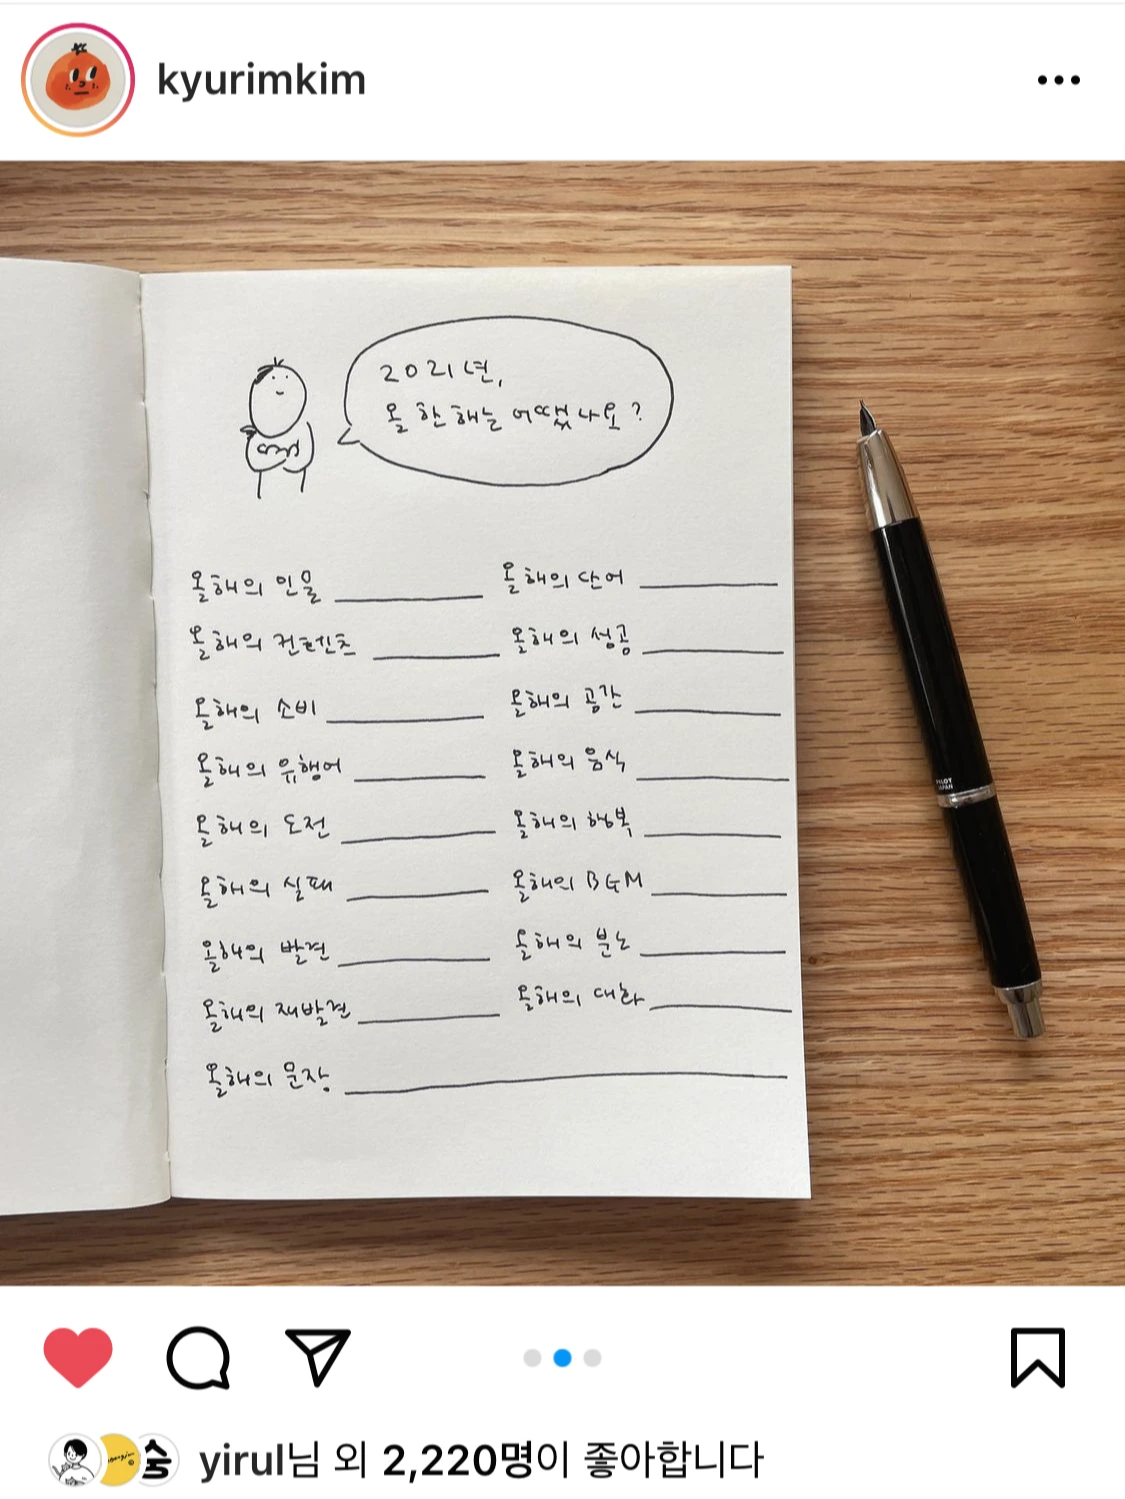 kyurimkim
2021년,
올 한 해는 어땠나요?
올해의 인물
올해의 단어
올해의 컨텐츠
올해의 성공
올해의 소비
올해의 공간
올해의 유행어
올해의 음식
올해의 도전
올해의 행복
올해의 실패
올해의 BGM
올해의 발견
올해의 분노
올해의 재발견
올해의 대화
올해의 문장
PILOT
JAPAN
yirul님 외 2,220명이 좋아합니다